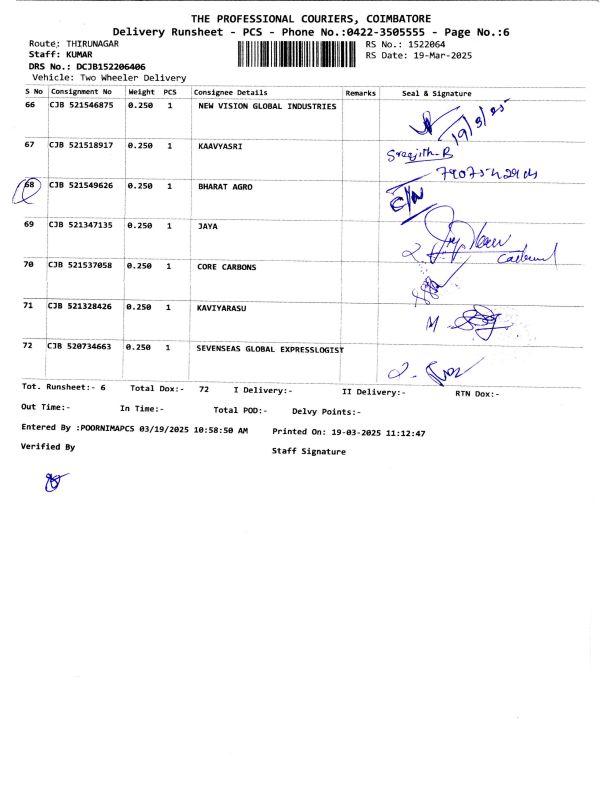 THE PROFESSIONAL COURIERS, COIMBATORE
Delivery Runsheet - PCS - Phone No.:0422-3505555 - Page No.:6
Route: THIRUNAGAR RS No.: 1522064
Staff: KUMAR RS Date: 19-Mar-2025
DRS No.: DCJB152206406
Vehicle: Two Wheeler Delivery
S No Consignment No Weight PCS Consignee Details Remarks Seal & Signature
66 CJB 521546875 0.250 1 NEW VISION GLOBAL INDUSTRIES
19/3/25
67 CJB 521518917 0.250 1 KAAVYASRI
Sreejith-B
68 CJB 521549626 0.250 1 BHARAT AGRO
69 CJB 521347135 0.250 1 JAYA
70 CJB 521537058 0.250 1 CORE CARBONS
71 CJB 521328426 0.250 1 KAVIYARASU
M
72 CJB 520734663 0.250 1 SEVENSEAS GLOBAL EXPRESSLOGIST
Tot. Runsheet:- 6 Total Dox:- 72 I Delivery:- II Delivery:- RTN Dox:-
Out Time:- In Time:- Total POD:- Delvy Points:-
Entered By :POORNIMAPCS 03/19/2025 10:58:50 AM Printed On: 19-03-2025 11:12:47
Verified By Staff Signature